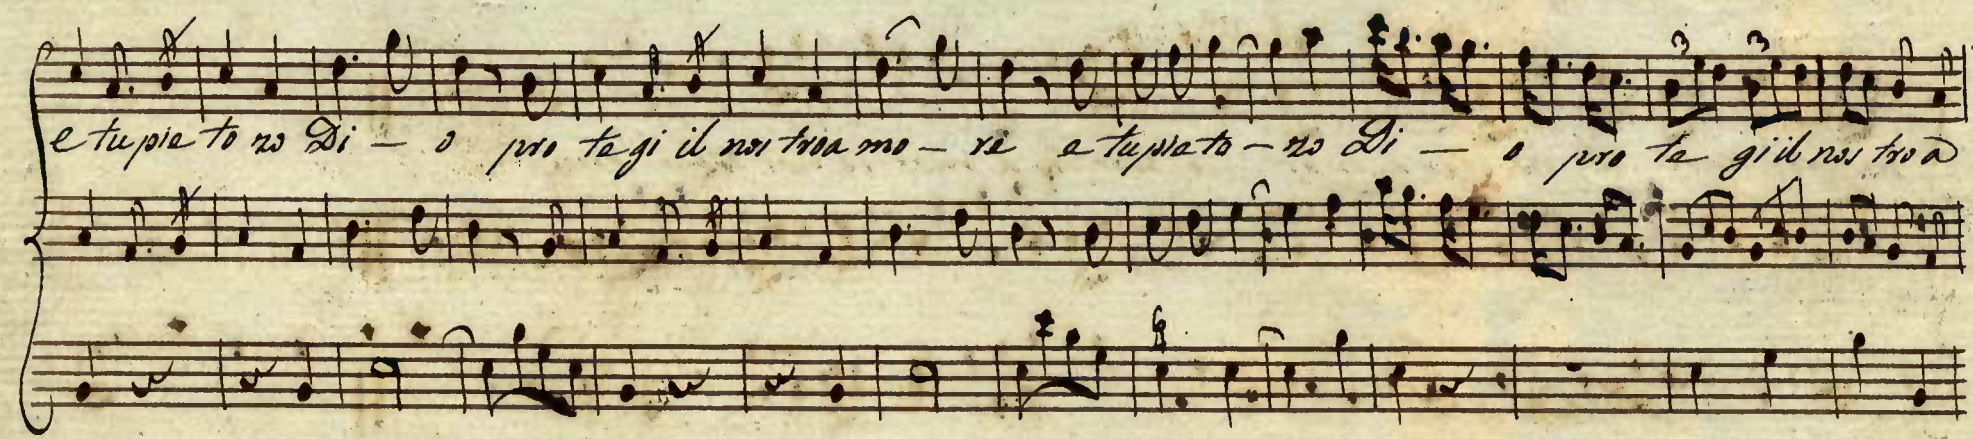 e tu pie to zo Di – o pro tegi il nos troa mo – re e tu pieto – zo Di – o pro te gi il nos tro a